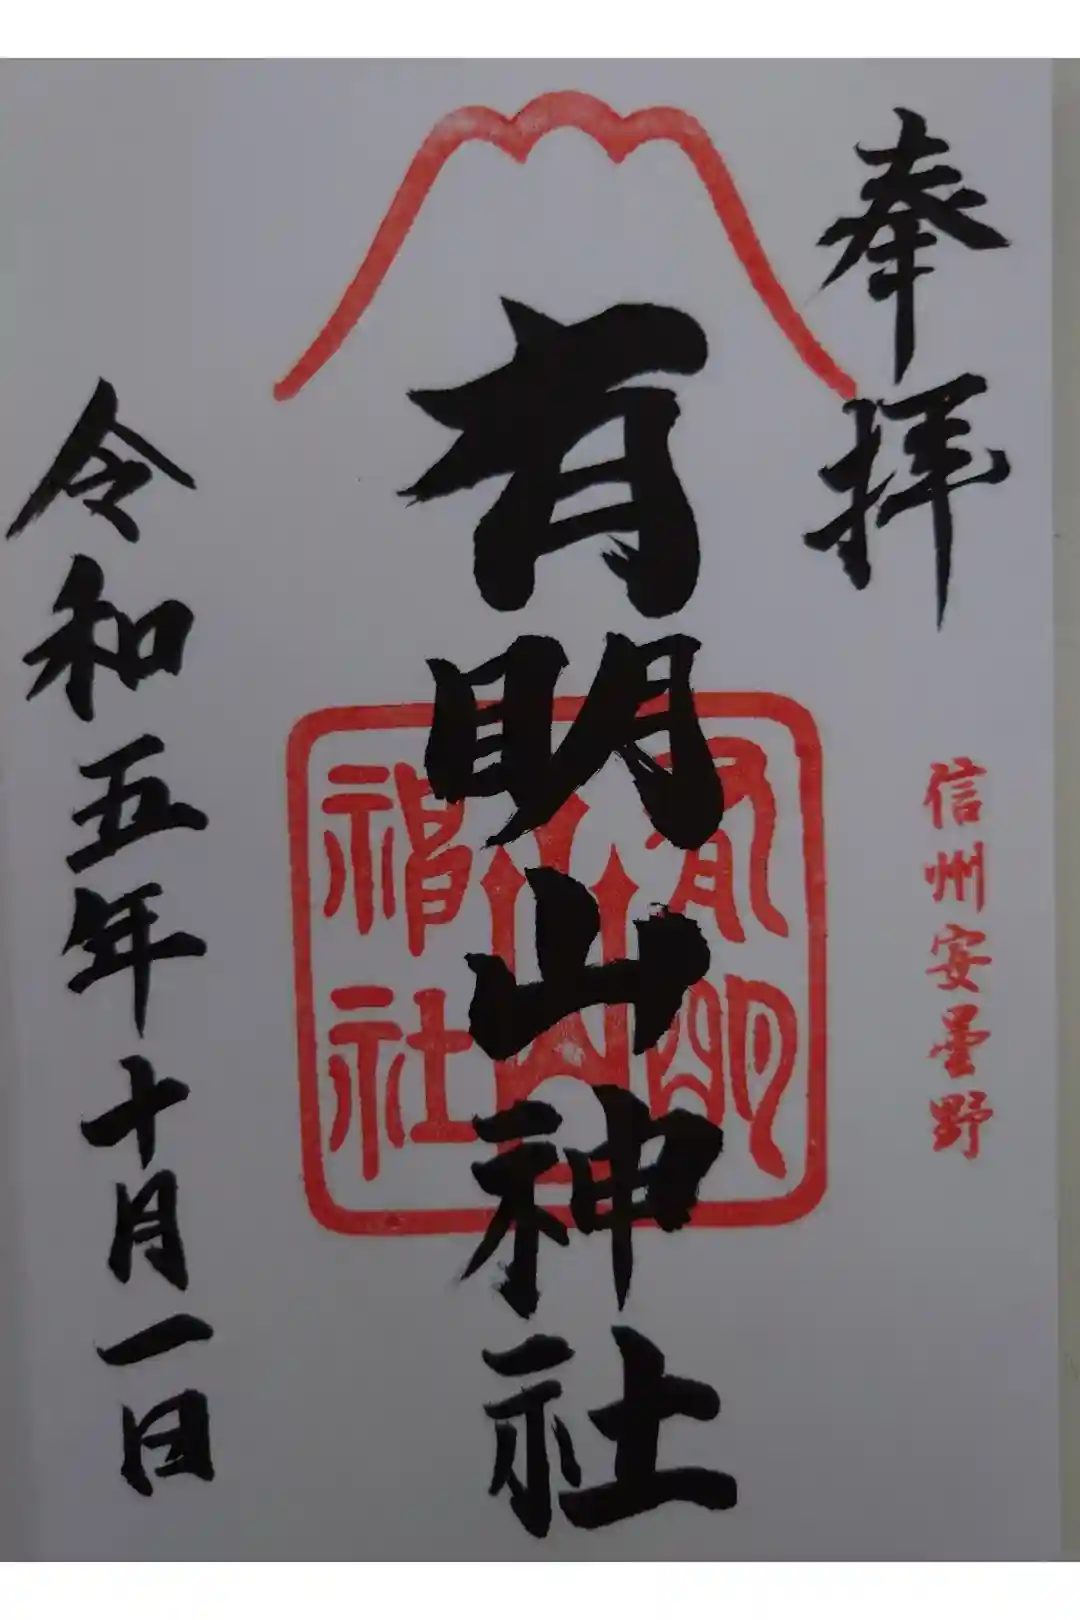 奉拝
信州安曇野
有明山神社
有明
山
神社
令和五年十月一日